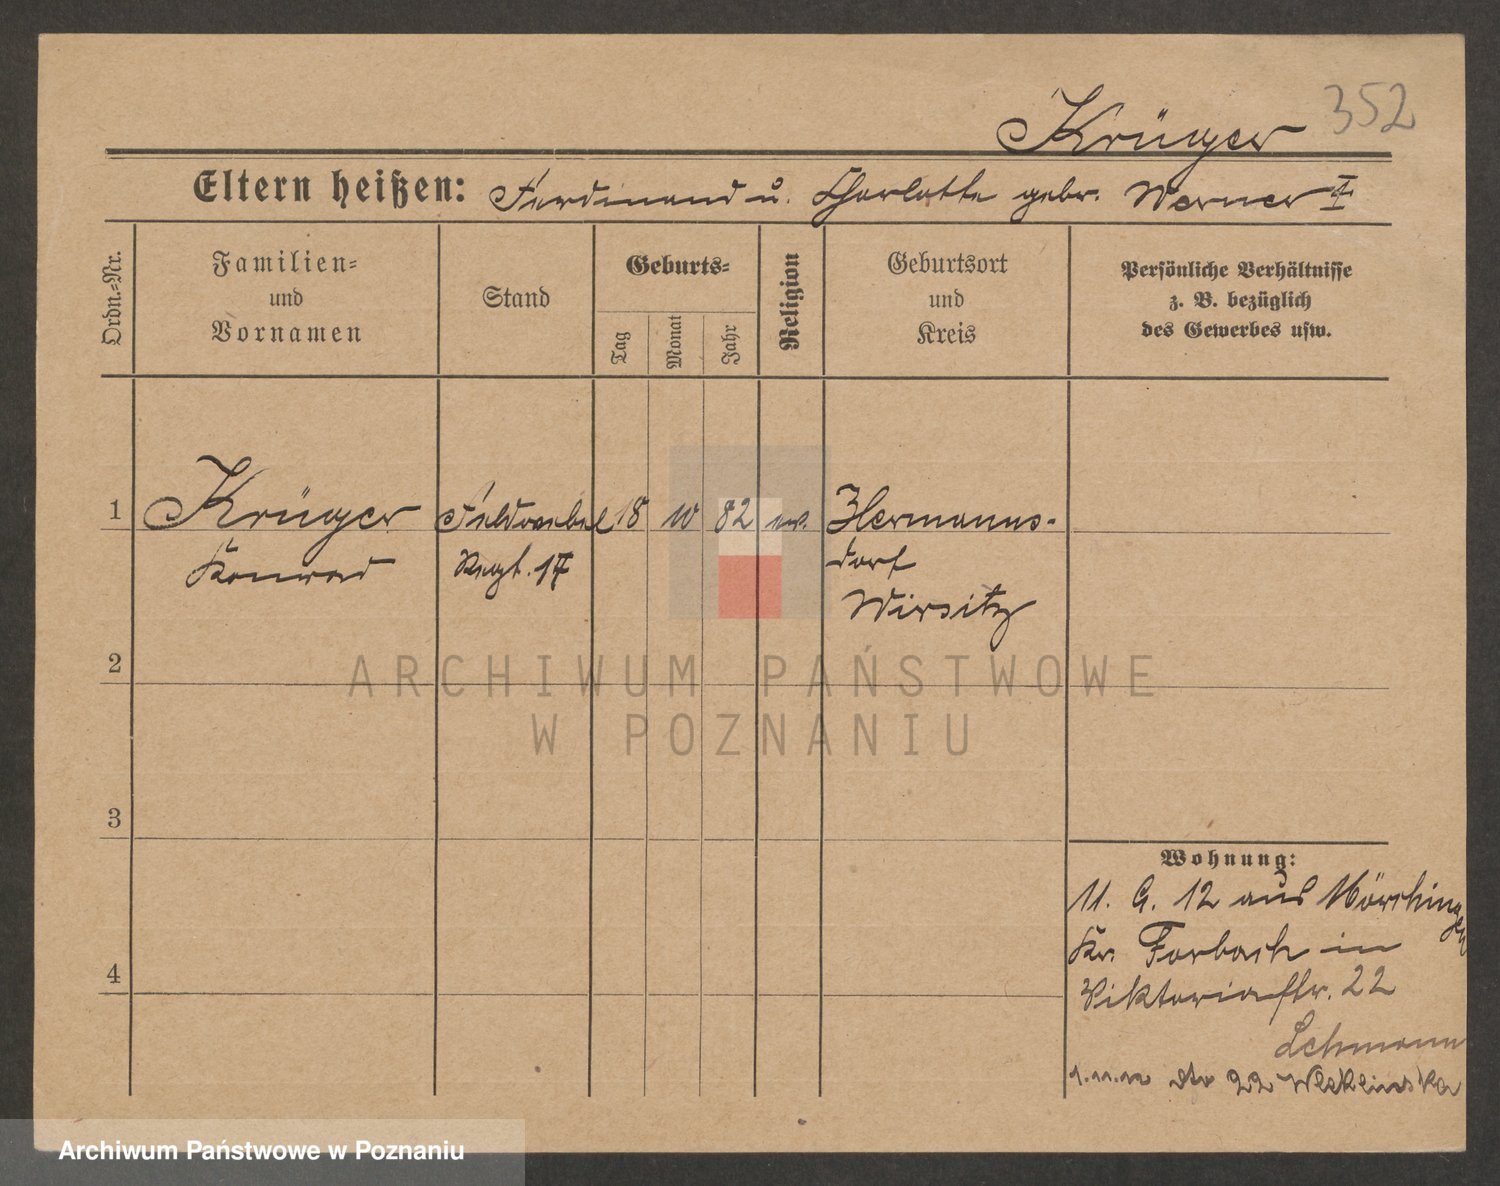 Krüger 352
Eltern heißen: Ferdinand u. Charlotte gebr. Werner
Ordn.-Nr.
Familien- und Vornamen
Stand
Geburts-
Tag
Monat
Jahr
Religion
Geburtsort und Kreis
Persönliche Verhältnisse
z. B. bezüglich
des Gewerbes usw.
1 Krüger Feldwebel 18 10 82 ev. Hermanns-
Konrad Regt. 17 dorf
Wirsitz
2
ARCHIWUM PAŃSTWOWE
W POZNANIU
3
4
Wohnung:
11. 9. 12 aus Mörchingen
Kr. Forbach in
Viktoriastr. 22
Lehmann
1.11.12 22
Archiwum Państwowe w Poznaniu